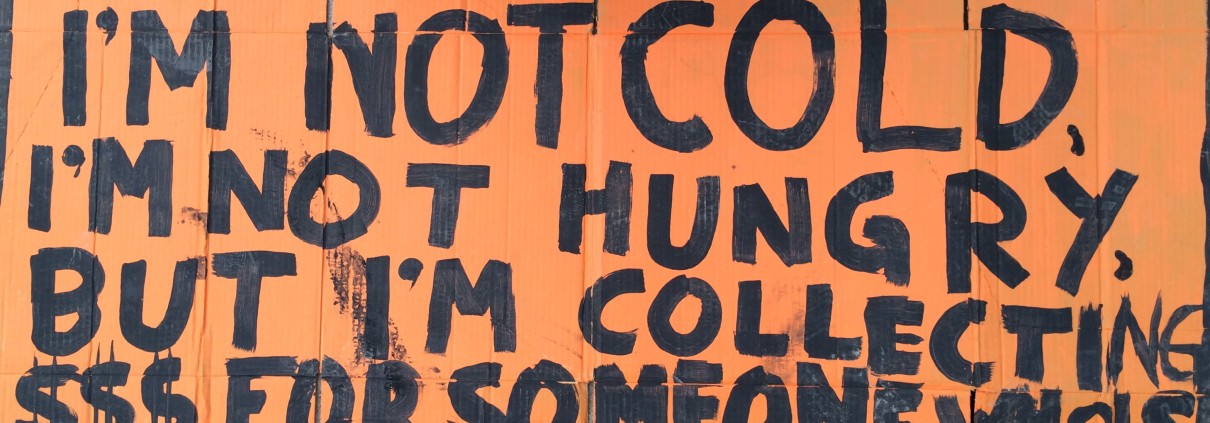 I'M NOT COLD,
I'M NOT HUNGRY,
BUT I'M COLLECTING
$$$ FOR SOMEONE WHO IS